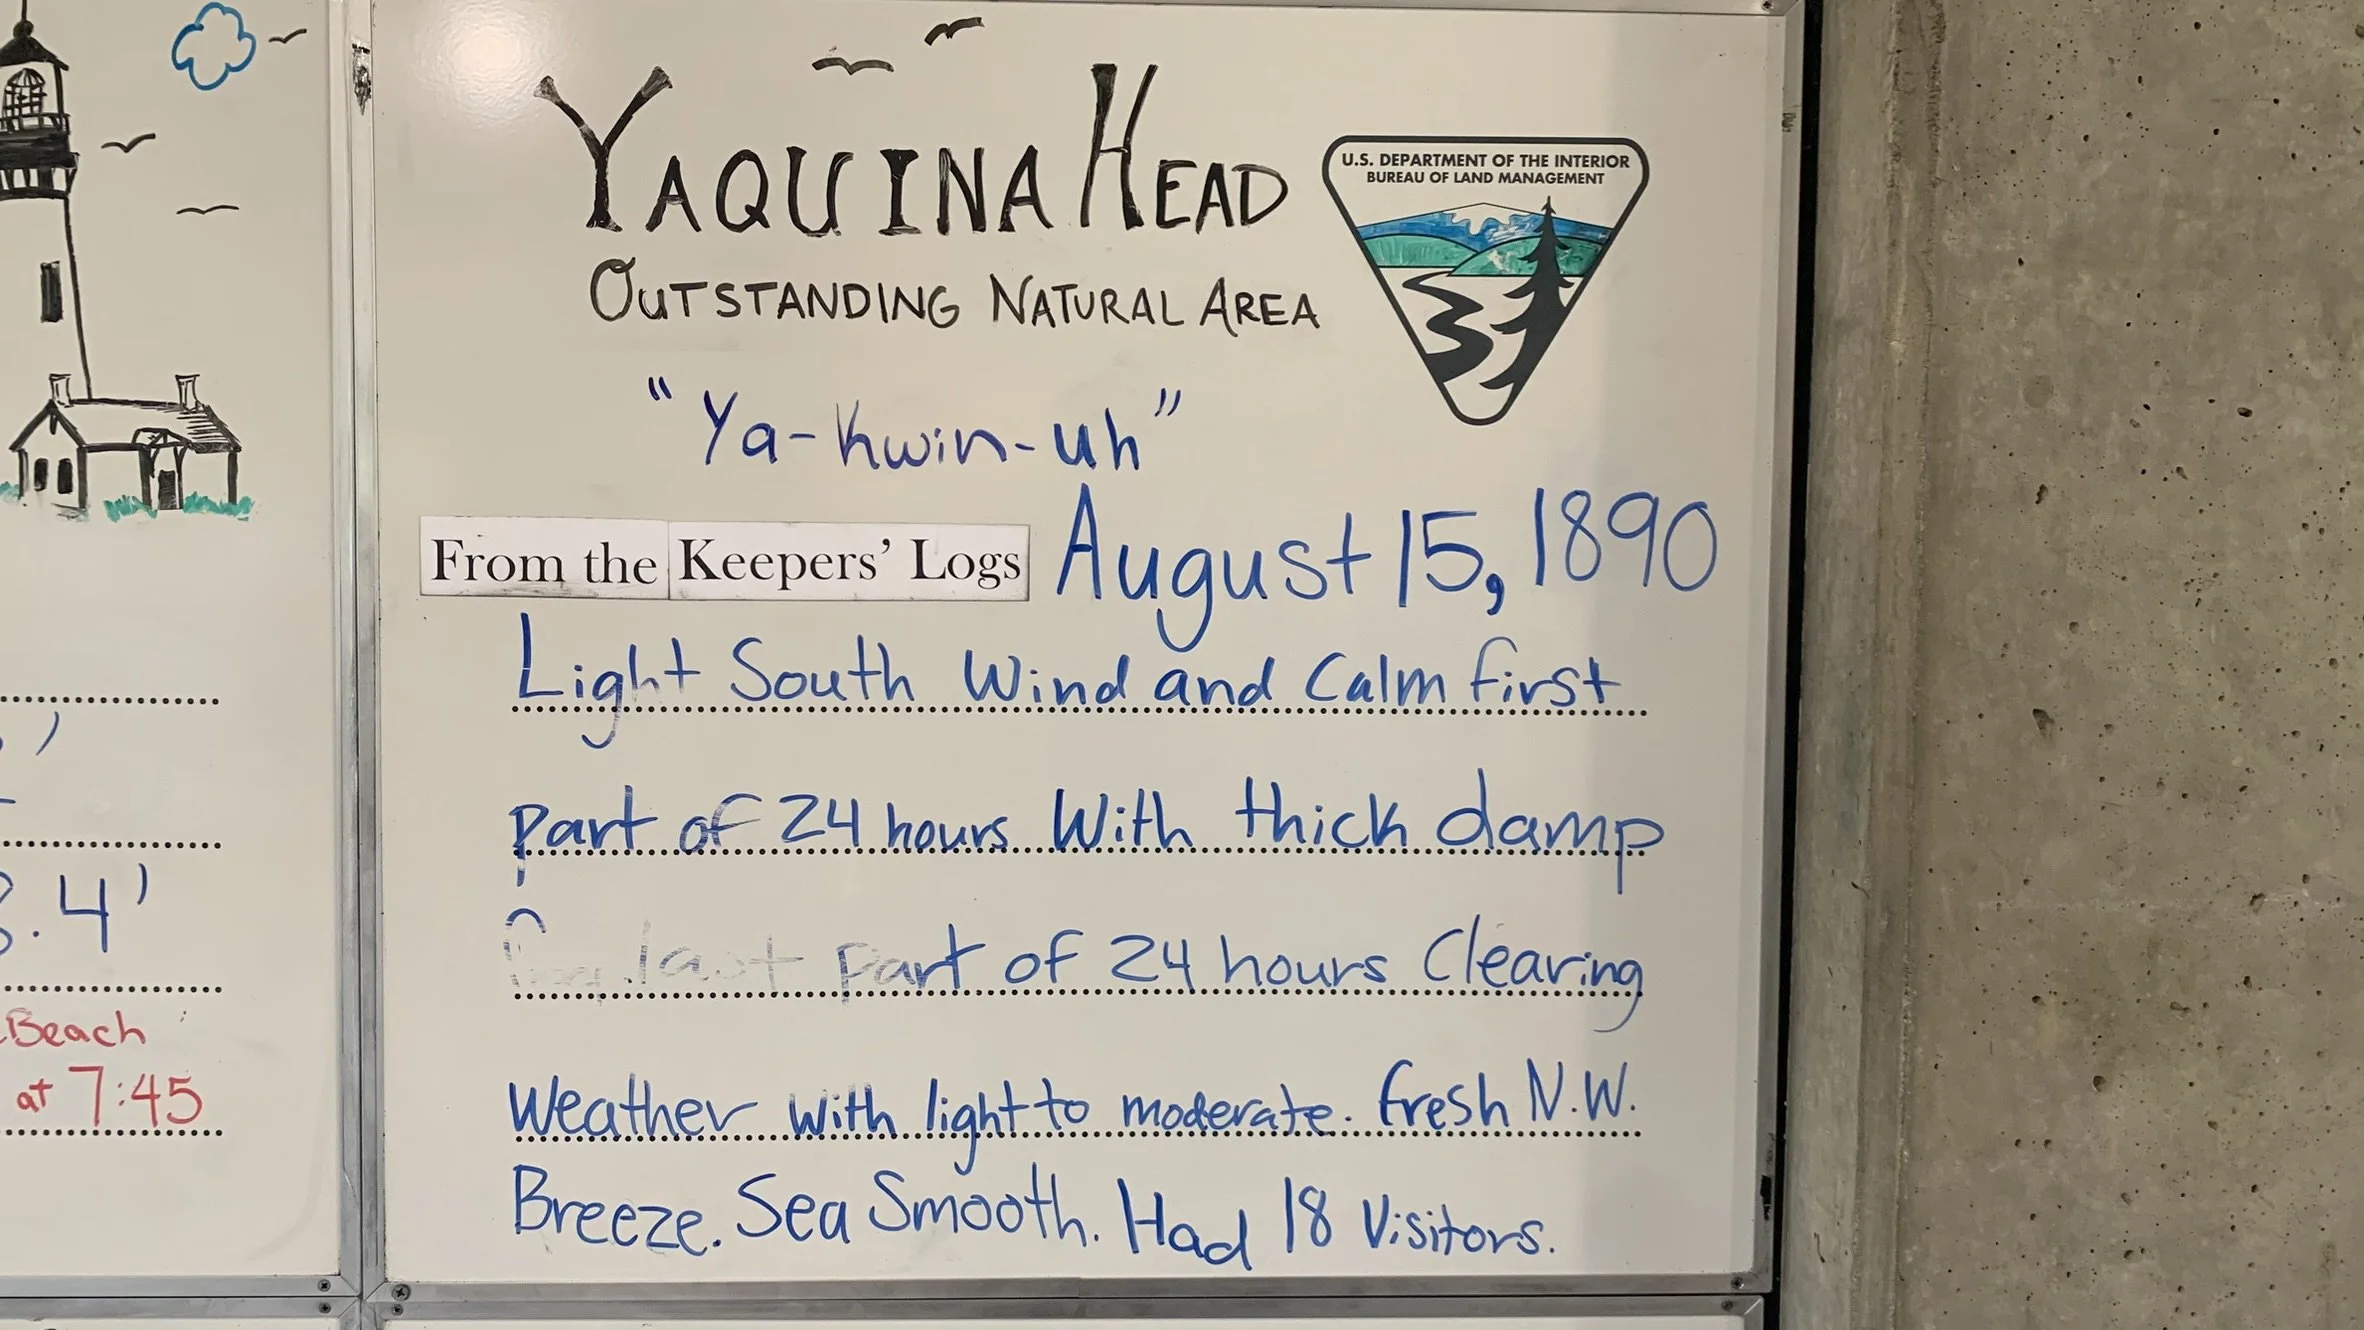 YAQUINA HEAD
OUTSTANDING NATURAL AREA
U.S. DEPARTMENT OF THE INTERIOR
BUREAU OF LAND MANAGEMENT
"Ya-kwin-uh"
From the Keepers' Logs August 15, 1890
Light South Wind and Calm first
part of 24 hours With thick damp
last part of 24 hours Clearing
Weather with light to moderate. fresh N.W.
Breeze. Sea Smooth. Had 18 Visitors.
.4'
Beach
at 7:45